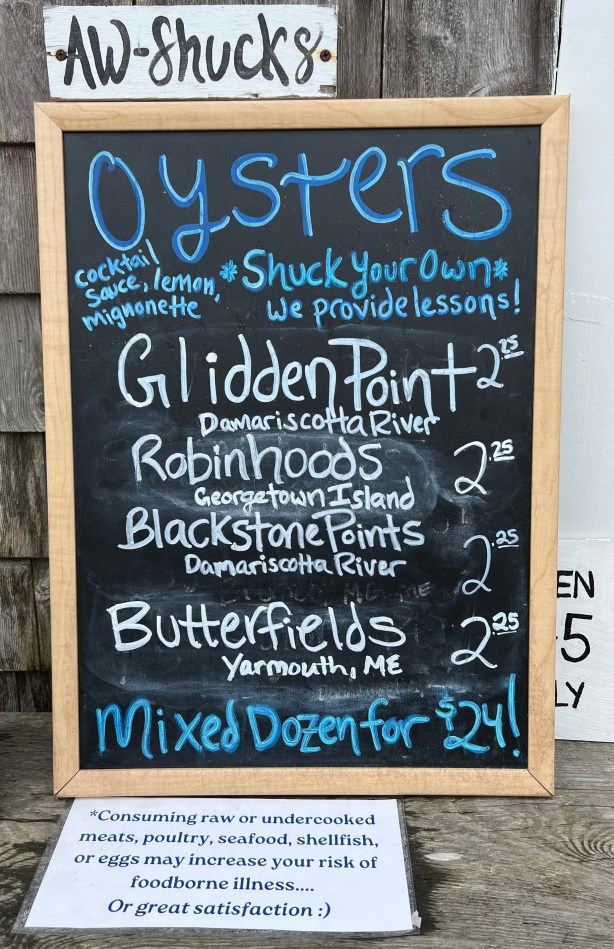 AW-Shucks
Oysters
cocktail
sauce, lemon,
mignonette
*Shuck Your Own*
we provide lessons!
Glidden Point 2.25
Damariscotta River
Robinhoods 2.25
Georgetown Island
Blackstone Points 2.25
Damariscotta River
Butterfields 2.25
Yarmouth, ME
Mixed Dozen for $24!
*Consuming raw or undercooked
meats, poultry, seafood, shellfish,
or eggs may increase your risk of
foodborne illness....
Or great satisfaction :)
EN
-5
LY